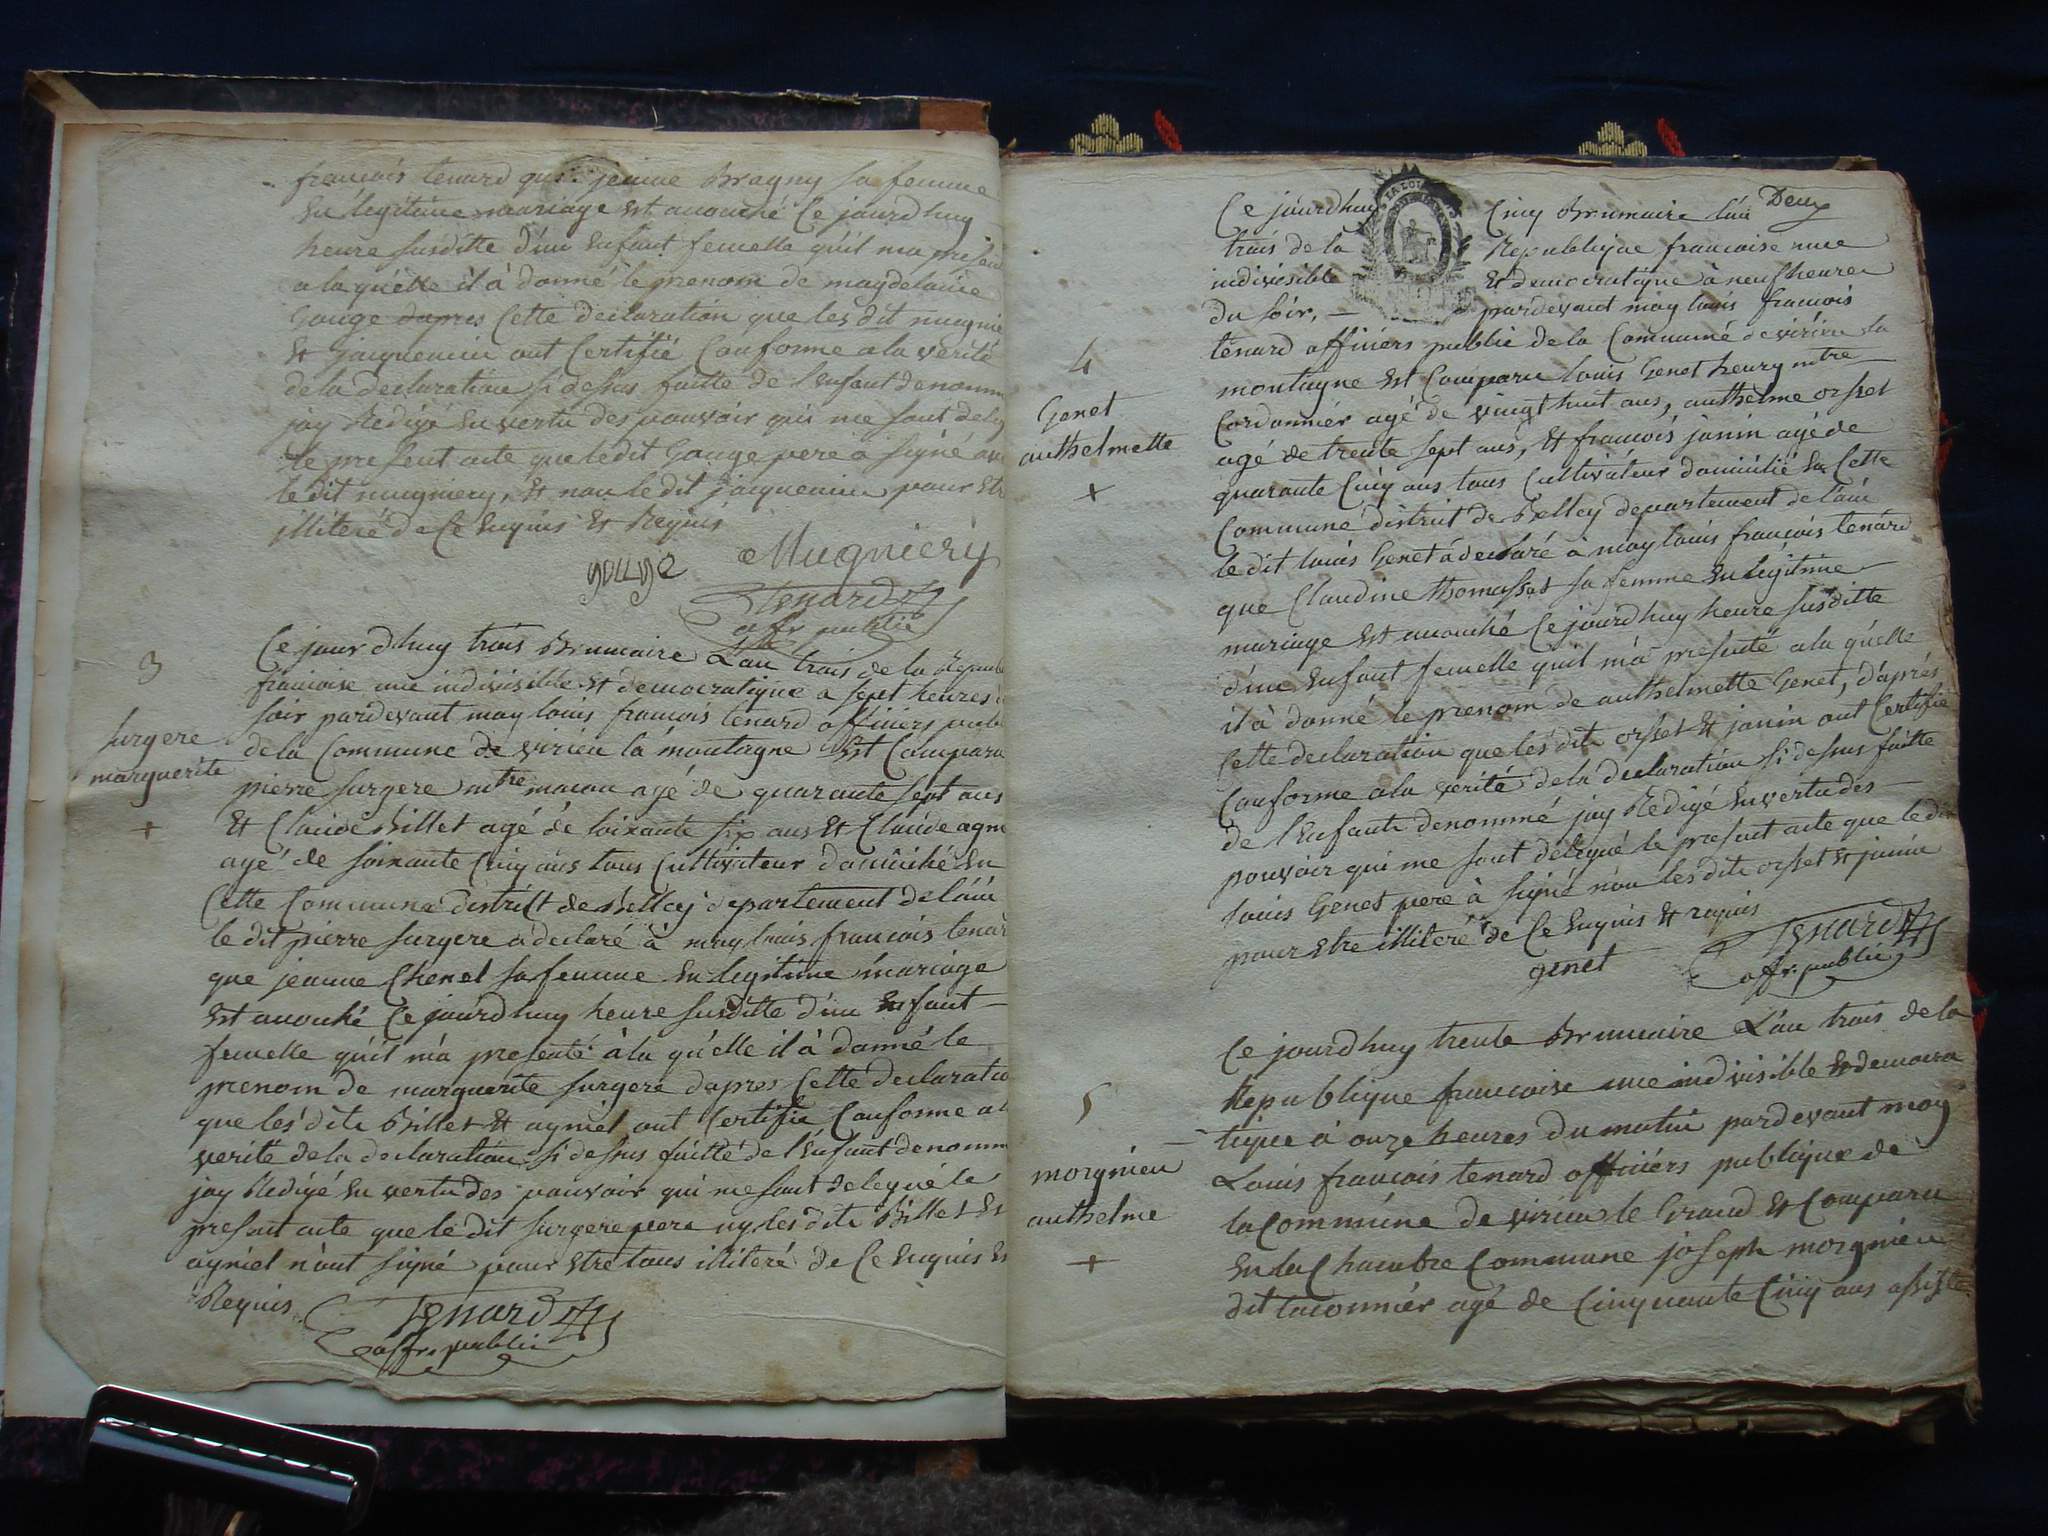 francois tenard que jeanne Bragny sa femme
En legitime mariage est acouché Ce jourd huy
heure susditte d'un Enfant femelle qu'il ma
a la quelle il à donné le prenom de magdelaine
Gouge dapres Cette declaration que les dit
Et jacquemin ont Certifié Conforme a la verité
de la declaration si dessus faitte de l'enfant
jay Redigé En vertu des pouvoir qui me sont
le present acte que le dit Gouge pere a signé
le dit mugniery, Et non le dit jacquemin pour
illiteré de Ce Enquis Et Requis
gouge Mugniéry
tenard
offr. public
3
surgere
marguerite
+
Ce jour d huy trois Brumaire L'an trois de la
francoise une indivisible Et democratique a sept heures
soir pardevant moy louis francois tenard officiers
de la Commune de virieu la montagne Est Comparu
pierre surgere mtre macon agé de quarante sept ans
Et Claude Billet agé de soixante six ans Et Claude
agé de soixante Cinq ans tous Cultivateur domicilié En
Cette Commune district de Belley departement de l'ain
le dit pierre surgere a declaré à moy louis francois
que jeanne Chenel sa femme En legitime mariage
Est acouché Ce jourd huy heure susditte d'un Enfant
femelle qu'il m'a presenté à la qu'elle il à donné le
prenom de marguerite surgere dapres Cette
que les dits Billet Et aymel ont Certifie Conforme
verité de la declaration si dessus faitte de l'Enfant
jay Redigé En vertu des pouvoir qui me sont delegué le
present acte que le dit surgere pere ny les dits Billet
aymel n'ont signé pour Etre tous illiteré de Ce Enquis
Requis
tenard
offr. public
Ce jourd huy Cinq Brumaire l'an Deux
trois de la Republique francoise une
indivisible Et democratique à neuf heures
du soir, pardevant moy louis francois
4
Genet
anthelmette
+
tenard officiers public de la Commune de virieu la
montagne Est Comparu louis Genet heury mtre
Cordonnier agé de vingt huit ans, anthelme orsset
agé de trente sept ans, Et francois janin agé de
quarante Cinq ans tous Cultivateur domicilié En Cette
Commune district de Belley departement de l'ain
le dit louis Genet à declaré à moy louis francois tenard
que Claudine thomasset sa femme En légitime
mariage Est acouché Ce jourd huy heure susditte
d'un Enfant femelle qu'il m'a presenté a la qu'elle
il à donné le prenom de anthelmette Genet, d'après
Cette declaration que les dit orsset Et janin ont Certifié
Conforme a la verité de la declaration si dessus faitte
de l'Enfant denommé jay Redigé En vertu des
pouvoir qui me sont délegué le present acte que le dit
louis Genet pere à signé non les dits orsset et janin
pour Etre illiteré de Ce Enquis Et requis
genet tenard
offr. public
5
morgnieu
anthelme
+
Ce jourd huy trente Brumaire L'an trois de la
Republique francoise une indivisible Et democra
tique à onze heures du matin pardevant moy
Louis francois tenard officiérs publique de
la Commune de virieu le Grand Et Comparu
En la Chambre Commune joseph morgnieu
dit laconnier agé de Cinquante Cinq ans